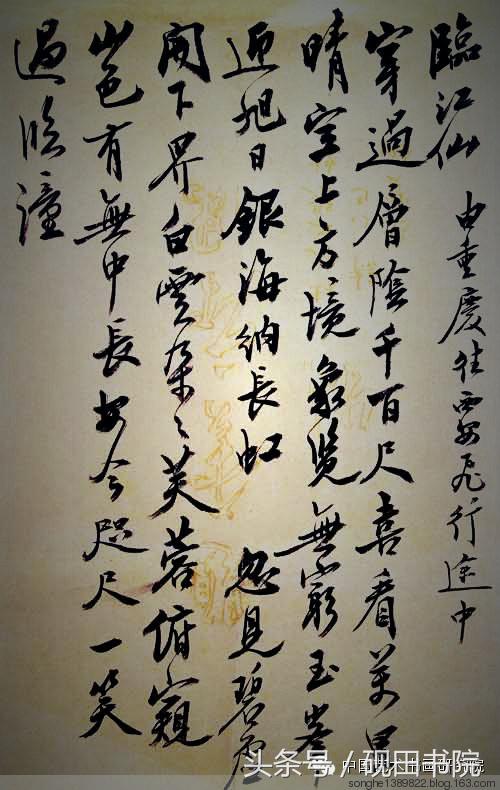 臨江仙 由重慶往西安飛行途中
穿過層陰千百尺喜看萬里
晴空上方境象覽無窮玉峯
迎旭日銀海納長虹 忽見碧虛
開下界白雲朵〻芙蓉俯窺
山色有無中長安今咫尺一笑
過臨潼
头条号 / 砚田书院
songhe1389822.blog.163.com